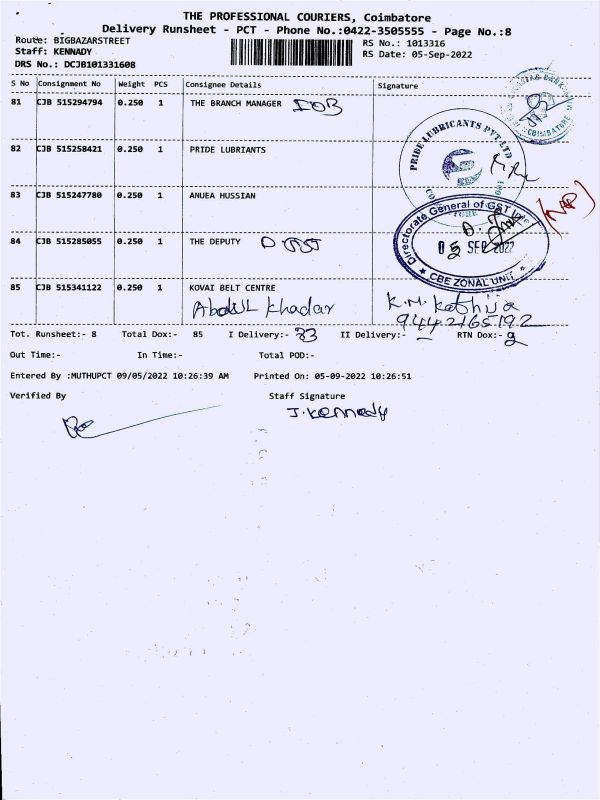 THE PROFESSIONAL COURIERS, Coimbatore
Delivery Runsheet - PCT - Phone No.:0422-3505555 - Page No.:8
Route: BIGBAZARSTREET
RS No.: 1013316
Staff: KENNADY
RS Date: 05-Sep-2022
DRS No.: DCJB101331608
S No Consignment No Weight PCS Consignee Details Signature
81 CJB 515294794 0.250 1 THE BRANCH MANAGER IOB
COIMBATORE
82 CJB 515258421 0.250 1 PRIDE LUBRIANTS
PRIDE LUBRICANTS PVT LTD
83 CJB 515247780 0.250 1 ANUEA HUSSIAN
Directorate General of GST
84 CJB 515285055 0.250 1 THE DEPUTY
05 SEP 2022
CBE ZONAL UNIT
85 CJB 515341122 0.250 1 KOVAI BELT CENTRE
Abdul Khadar K.M. Kathija
9442165192
Tot. Runsheet:- 8 Total Dox:- 85 I Delivery:- 83 II Delivery:- - RTN Dox:- 2
Out Time:- In Time:- Total POD:-
Entered By :MUTHUPCT 09/05/2022 10:26:39 AM Printed On: 05-09-2022 10:26:51
Verified By Staff Signature
J. Kennedy